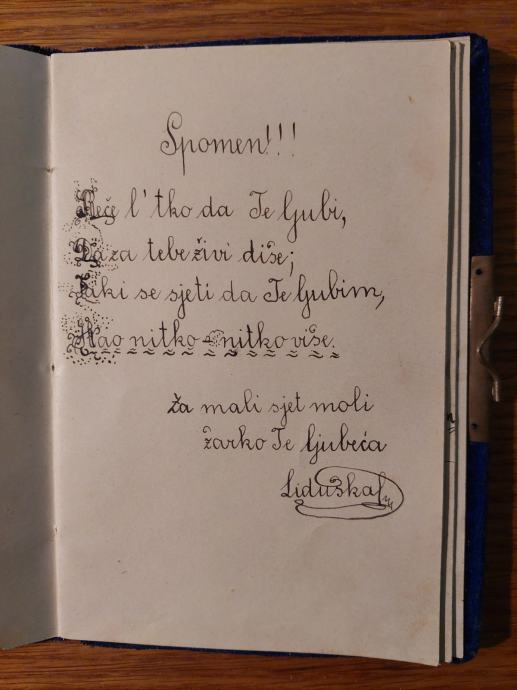 Spomen!!!
Reče l' tko da Te ljubi,
Da za tebe živi diše;
Ti se sjeti da Te ljubim,
Kao nitko nitko više.
Za mali sjet moli
žarko Te ljubeća
Liduška